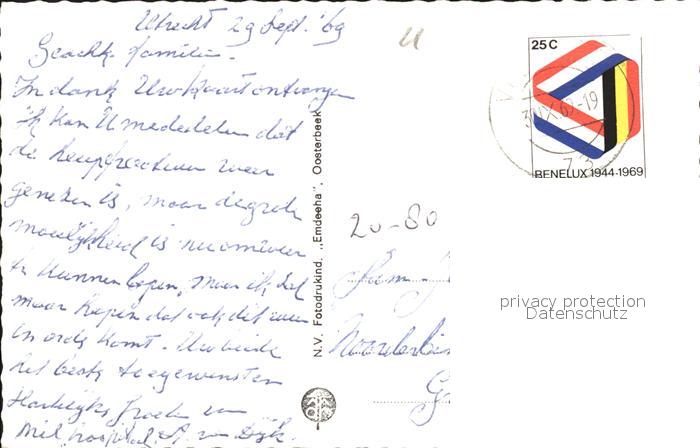 Utrecht 29 Sept. '69
Geachte familie.
In dank Uw kaart ontvangen
ik kan U mededelen dat
de heupfractuur weer
genezen is, maar de grote
moeilijkheid is nu om weer
te kunnen lopen, maar ik zal
maar hopen dat ook dit weer
in orde komt. Uw beide
het beste toegewenst en
Hartelijke groeten van
v. Dijk.
N.V. Fotodrukind. „Emdeeha", Oosterbeek
25 C
69-19
BENELUX 1944-1969
20-80
Fam
privacy protection
Datenschutz